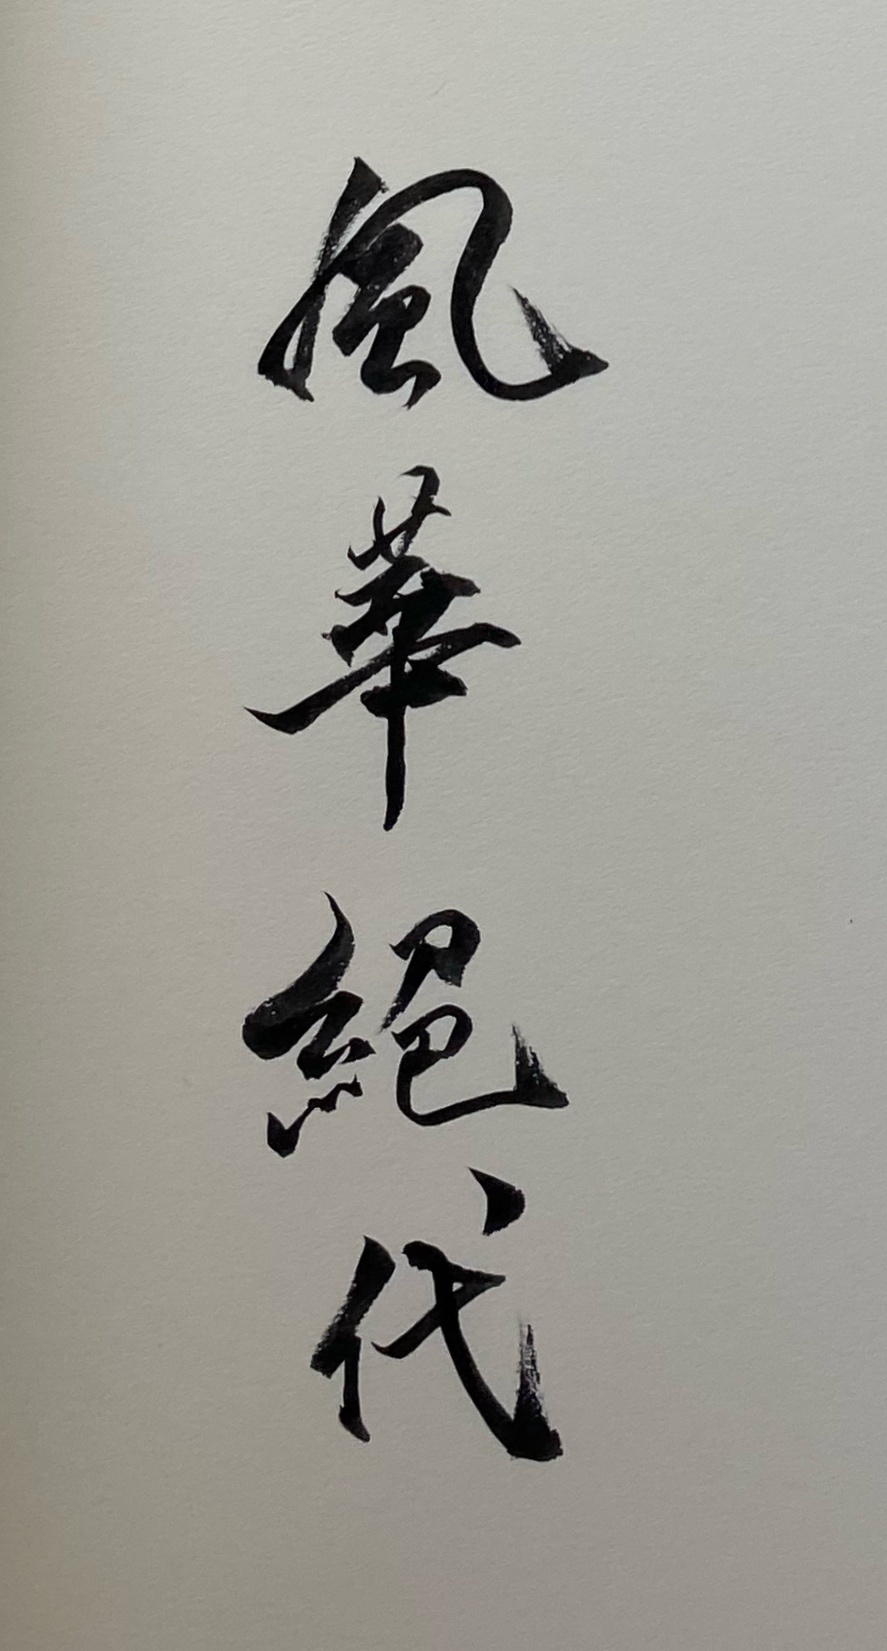 風華絕代